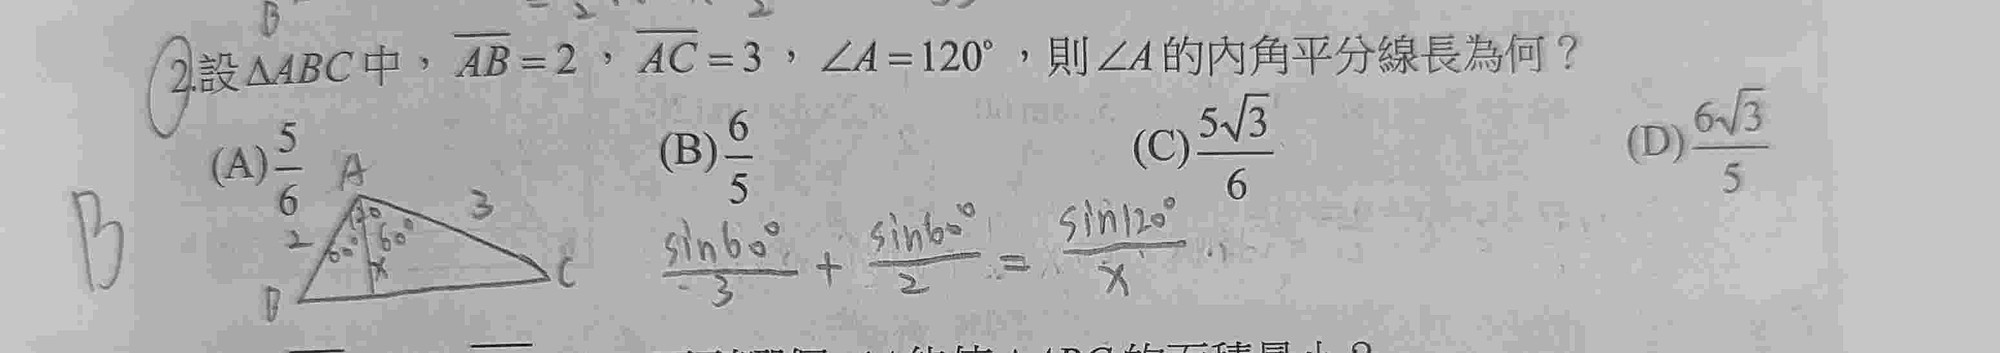 B
2.設ΔABC中，AB=2，AC=3，∠A=120°，則∠A的內角平分線長為何？
(A)5/6 (B)6/5 (C)5√3/6 (D)6√3/5
B
A 2 3 60° 60° x B C
sin60°/3 + sin60°/2 = sin120°/x